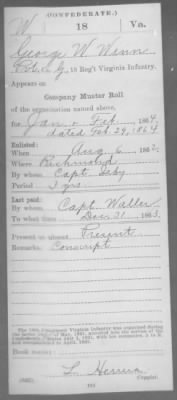 (CONFEDERATE.)
W 18 Va.
George W Wann
Pvt, Co. G, 18 Reg't Virginia Infantry.
Appears on
Company Muster Roll
of the organization named above,
for Jan & Feb, 1864.
dated Feb 29, 1864
Enlisted:
When Aug 6, 186
Where Richmond
By whom Capt.
Period 3 yrs
Last paid:
By whom Capt. Waller
To what time Dec 31, 1863.
Present or absent Present
Remarks: Conscript
Book mark:
L. Herren
Copyist.